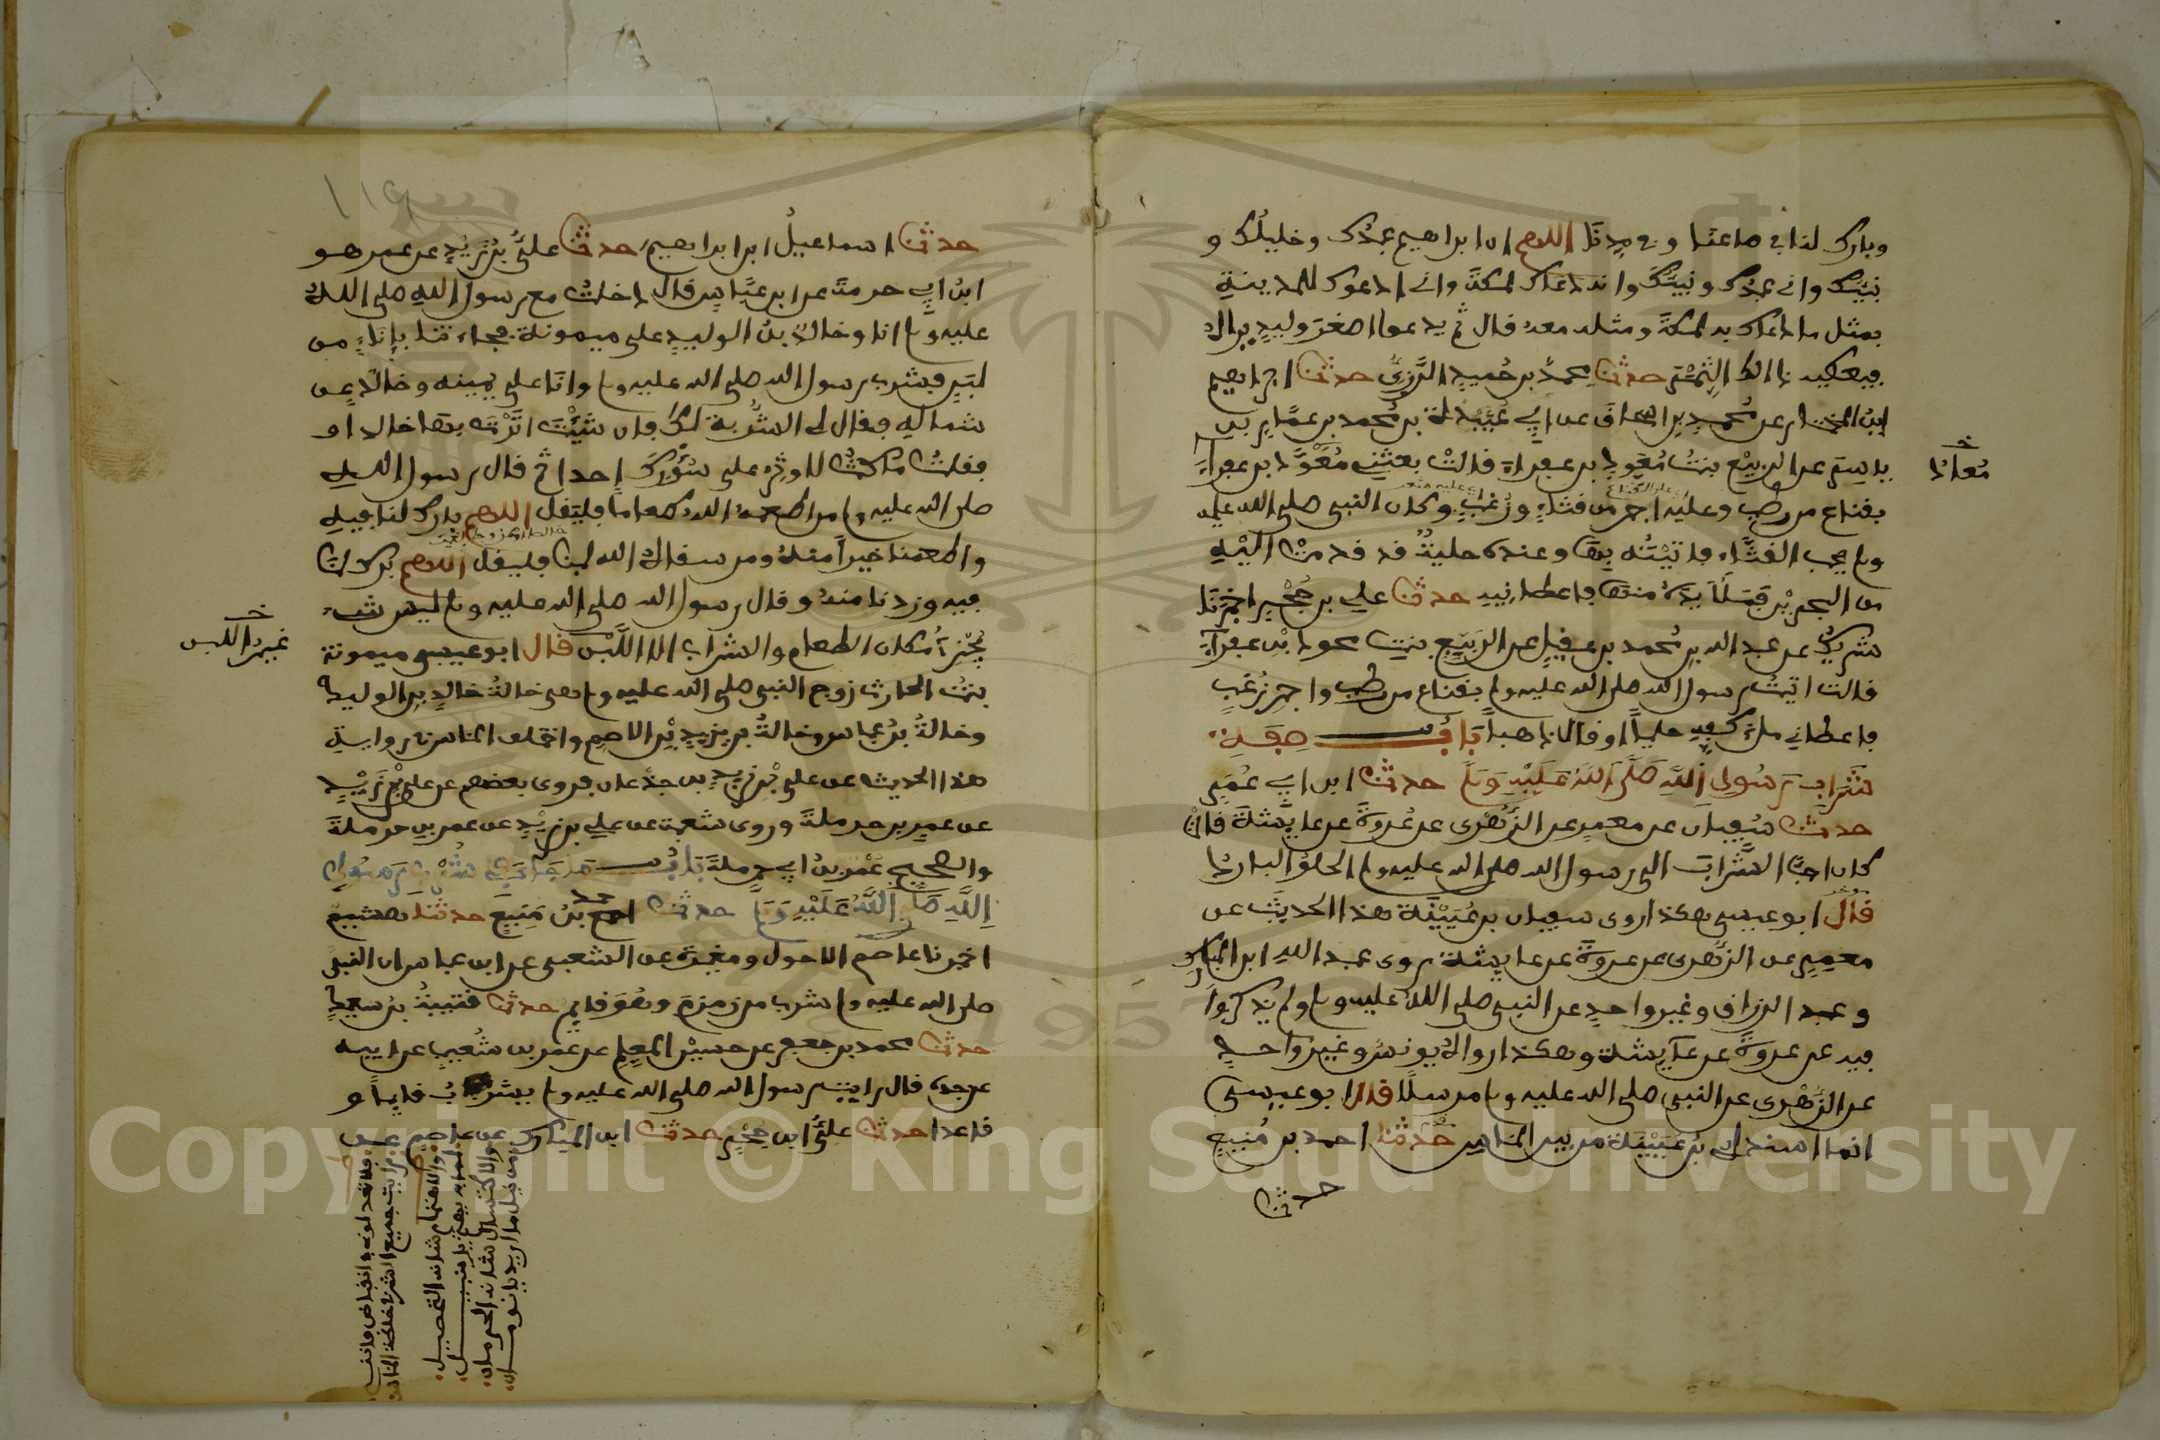 وبارك لنا في صاعنا وفي مدنا اللهم ان ابراهيم عبدك وخليلك و
نبيك واني عبدك ونبيك وانه دعاك لمكة واني ادعوك للمدينة
بمثل ما دعاك به لمكة ومثله معه قال ثم يدعوا اصغر وليد يراه
فيعطيه ذالك الثمر حدثنا محمد بن حميد الرزي حدثنا ابراهيم
ابن المختار عن محمد بن اسحاق عن ابي عبيدة بن محمد بن عمار بن
ياسر عن الربيع بنت معوذ بن عفراء قالت بعثني معوذ بن عفراء
معاذ
خ
بقناع من رطب وعليه اجر من قثاء زغب وكان النبي صلى الله عليه
وسلم يحب القثاء فاتيته بها وعنده حلية قد قدمت اليه
من البحرين فملأ يده منها فاعطانيه حدثنا علي بن حجر اخبرنا
شريك عن عبد الله بن محمد بن عقيل عن الربيع بنت معوذ بن عفراء
قالت اتيت رسول الله صلى الله عليه وسلم بقناع من رطب واجر زغب
فاعطاني ملء كفه حليا او قال ذهبا باب صفة
شراب رسول الله صلى الله عليه وسلم حدثنا ابن ابي عمر
حدثنا سفيان عن معمر عن الزهري عن عروة عن عايشة قالت
كان احب الشراب الى رسول الله صلى الله عليه وسلم الحلو البارد
قال ابو عيسى هكذا روى سفيان بن عيينة هذا الحديث عن
معمر عن الزهري عن عروة عن عايشة وروى عبد الله ابن المبارك
وعبد الرزاق وغير واحد عن النبي صلى الله عليه وسلم ولم يذكروا
فيه عن عروة عن عايشة وهكذا رواه يونس وغير واحد
عن الزهري عن النبي صلى الله عليه وسلم مرسلا قال ابو عيسى
انما اسنده ابن عيينة من بين الناس حدثنا احمد بن منيع
حدثنا
١١٩
حدثنا اسماعيل ابن ابراهيم حدثنا علي بن زيد عن عمر هو
ابن ابي حرملة عن ابن عباس قال دخلت مع رسول الله صلى الله
عليه وسلم انا وخالد بن الوليد على ميمونة فجاءتنا بإناء من
لبن فشرب رسول الله صلى الله عليه وسلم وانا على يمينه وخالد عن
شماله فقال لي الشربة لك فان شئت اثرت بها خالدا
فقلت ما كنت لاوثر على سؤرك احدا ثم قال رسول الله
صلى الله عليه وسلم من اطعمه الله طعاما فليقل اللهم بارك لنا فيه
واطعمنا خيرا منه ومن سقاه الله لبنا فليقل اللهم بارك لنا
فيه وزدنا منه وقال رسول الله صلى الله عليه وسلم ليس شيء
يجزئ مكان الطعام والشراب الا اللبن قال ابو عيسى ميمونة
خ
غير اللبن
بنت الحارث زوج النبي صلى الله عليه وسلم هي خالة خالد بن الوليد
وخالة بن عباس وخالة بن يزيد بن الاصم واختلف الناس في رواية
هذا الحديث عن علي بن زيد بن جدعان فروى بعضهم عن علي بن زيد
عن عمر بن حرملة وروى شعبة عن علي بن زيد عن عمر بن حرملة
والصحيح عمر بن ابي حرملة باب ما جاء في شرب رسول
الله صلى الله عليه وسلم حدثنا احمد بن منيع حدثنا هشيم
اخبرنا عاصم الاحول ومغيرة عن الشعبي عن ابن عباس ان النبي
صلى الله عليه وسلم شرب من زمزم وهو قايم حدثنا قتيبة بن سعيد
حدثنا محمد بن جعفر عن حسين المعلم عن عمر بن شعيب عن ابيه
عن جده قال رايت رسول الله صلى الله عليه وسلم يشرب قايما و
قاعدا حدثنا علي ابن حجر حدثنا ابن المبارك عن عاصم عن